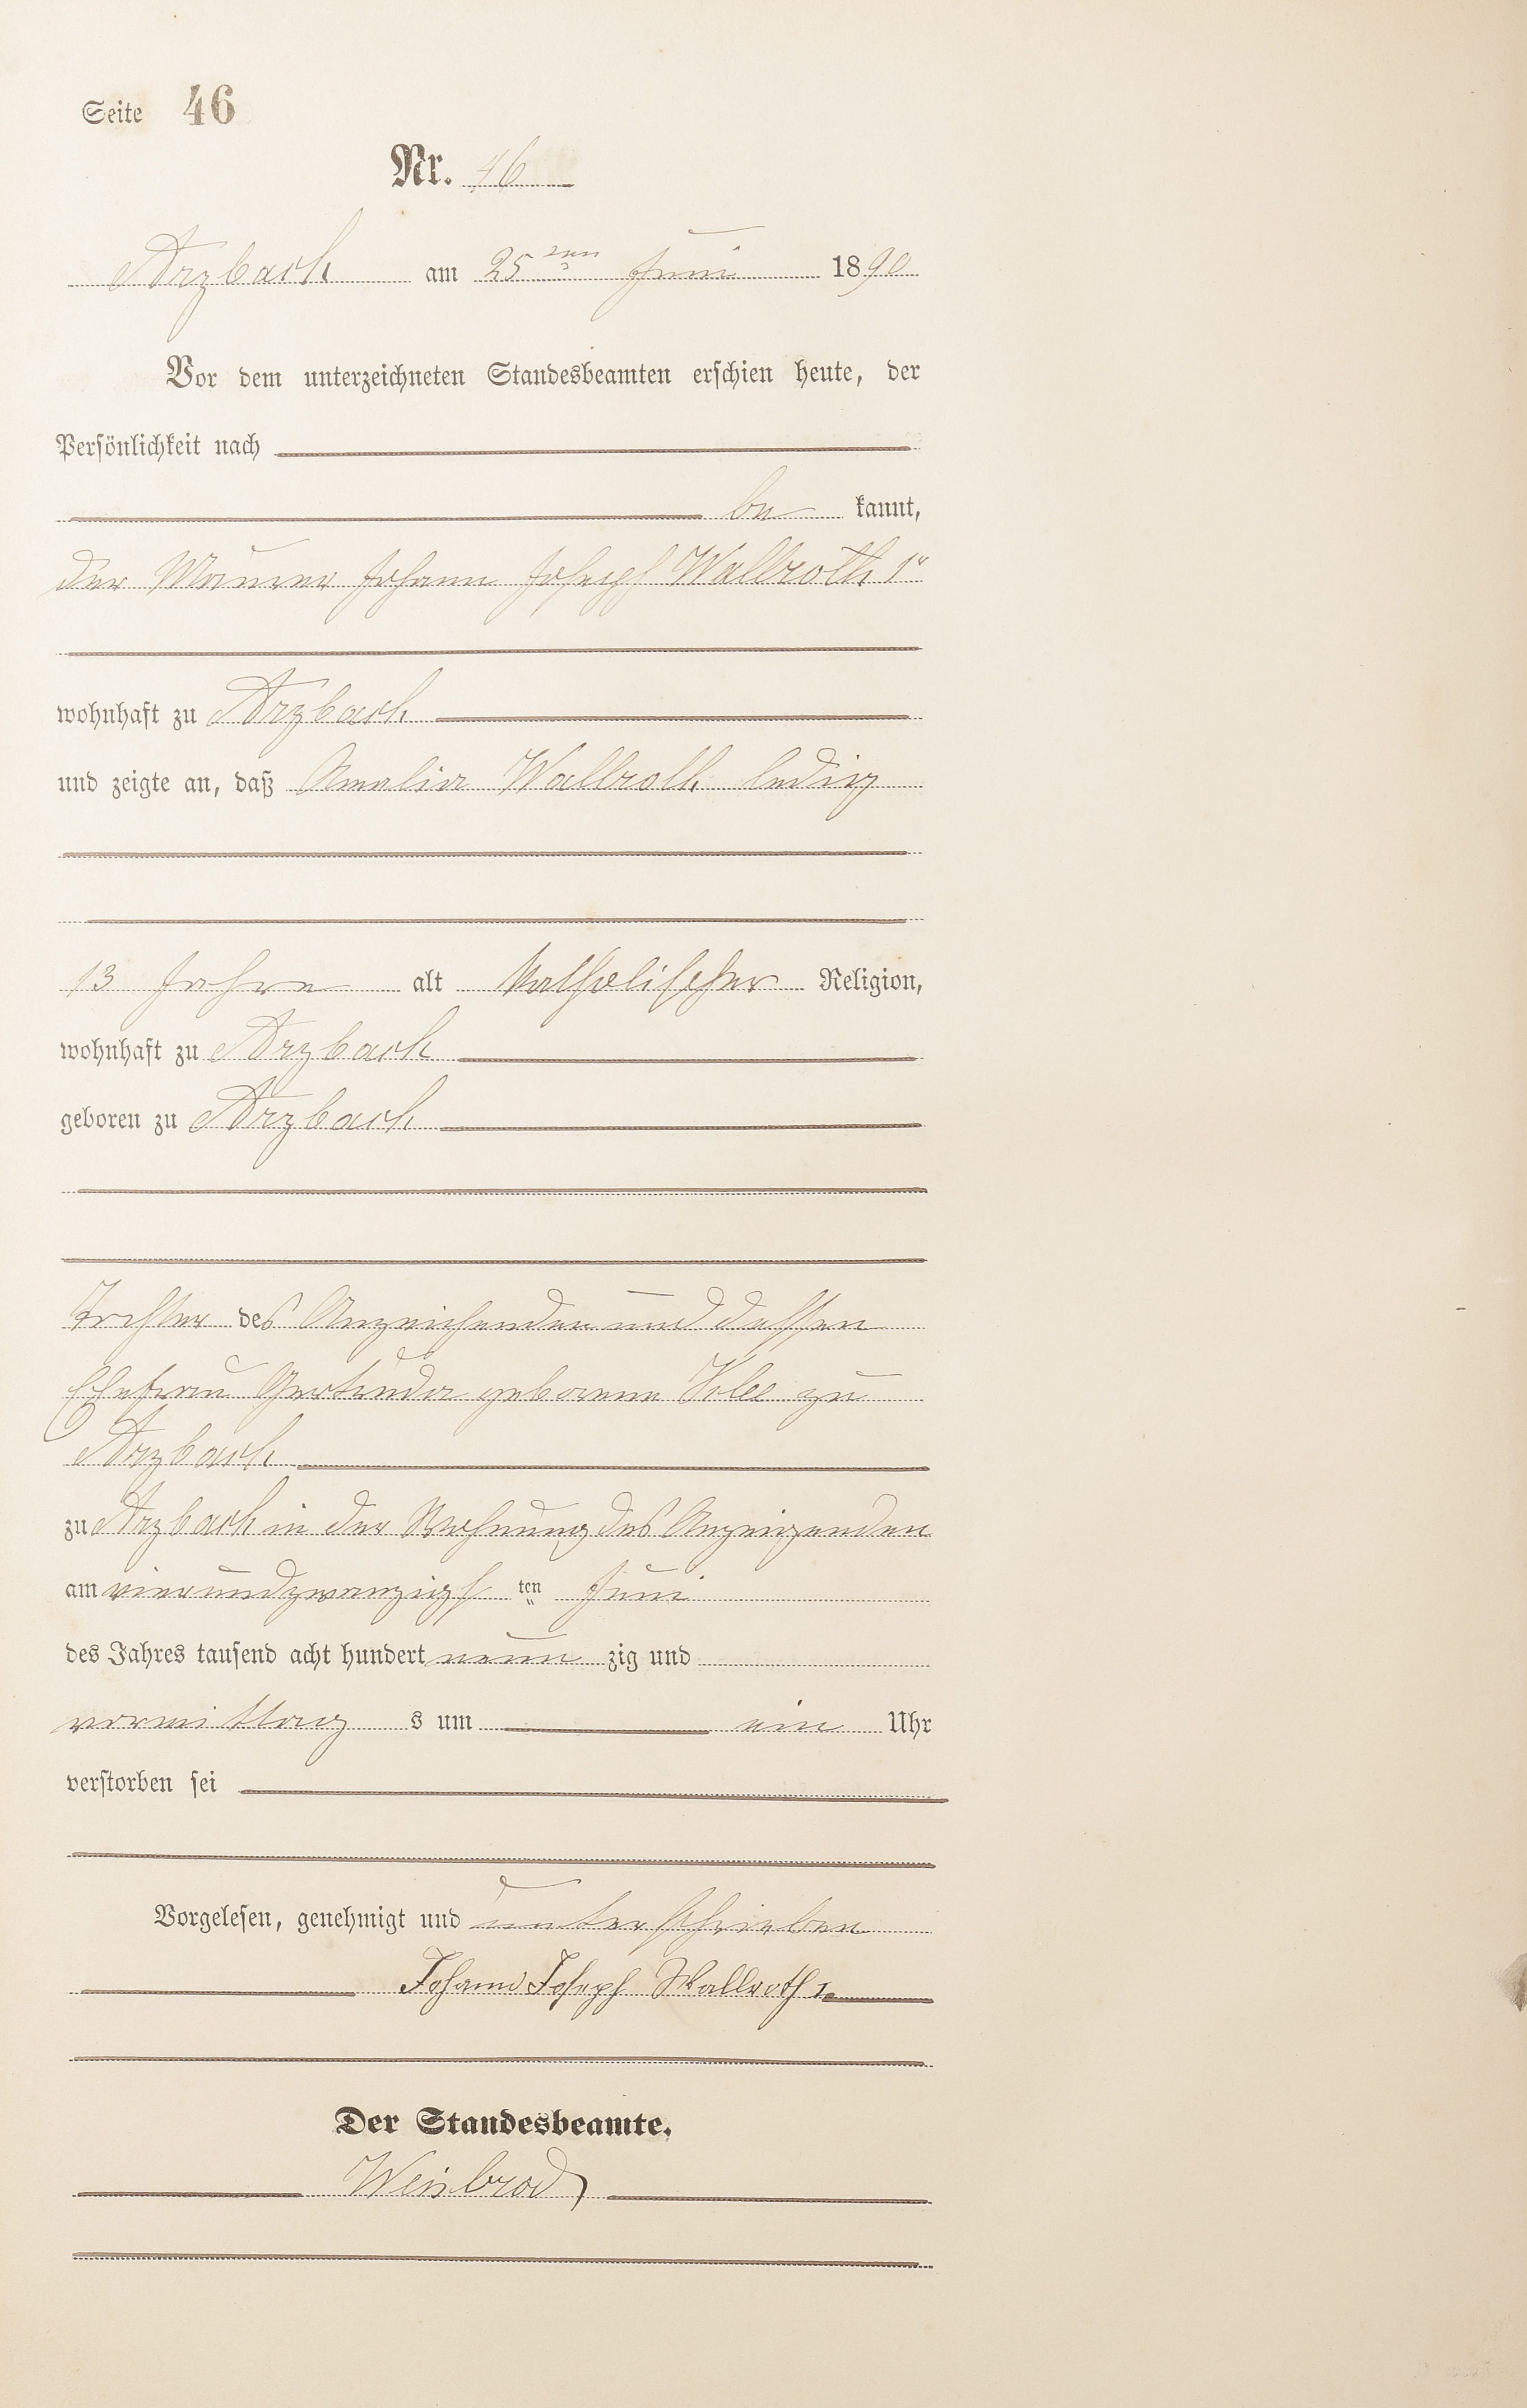 Seite 46
Nr. 46
Arzbach am 25ten Juni 1890
Vor dem unterzeichneten Standesbeamten erschien heute, der
Persönlichkeit nach
be kannt,
der Maurer Johann Joseph Wallroth 1r
wohnhaft zu Arzbach
und zeigte an, daß Amalia Wallroth ledig
13 Jahre alt katholischer Religion,
wohnhaft zu Arzbach
geboren zu Arzbach
Tochter des Anzeigenden und dessen
Ehefrau Gertruda geborene Klee zu
Arzbach
zu Arzbach in der Wohnung des Anzeigenden
am vierundzwanzigs ten Juni
des Jahres tausend acht hundert neun zig und
vormittag s um ein Uhr
verstorben sei
Vorgelesen, genehmigt und unterschrieben
Johann Joseph Wallroth 1.
Der Standesbeamte.
Weinbrod